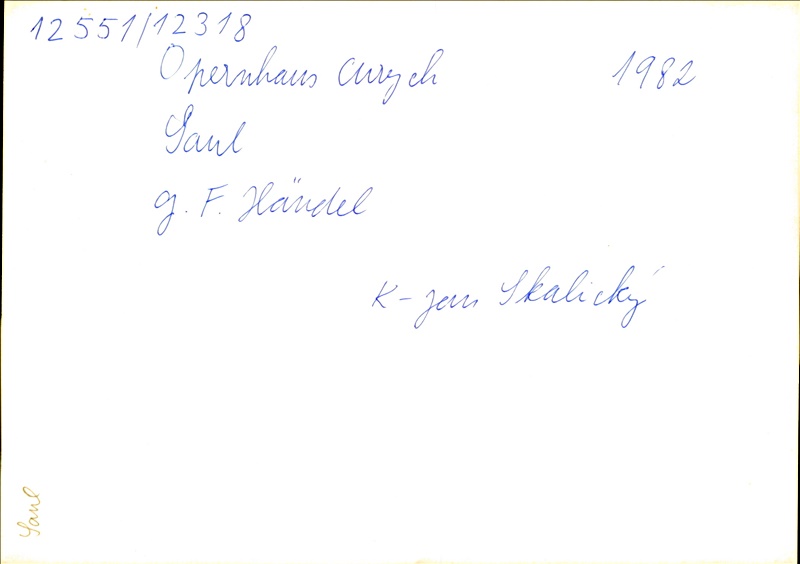 12551/12318
Opernhaus Curych 1982
Saul
G. F. Händel
K - Jan Skalický
Saul